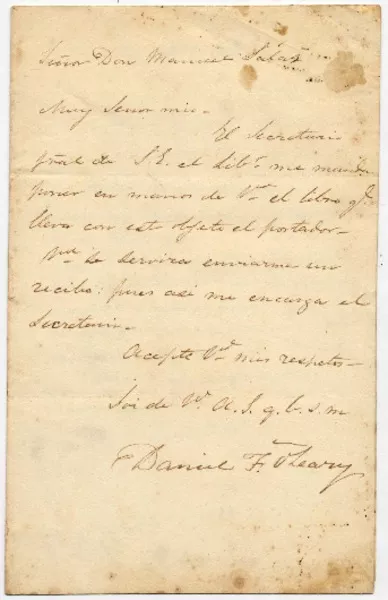 Señor Don Manuel Salas
Muy Señor mio.
El Secretario
gral de S. E. el Libr. me manda
poner en manos de Vmd el libro qe
lleva con este objeto el portador.
Vmd se servira enviarme un
recibo: pues asi me encarga el
Secretario.
Acepte Vmd mis respetos
Soi de Vmd A. S. q. b. s. m
Daniel F. O'Leary